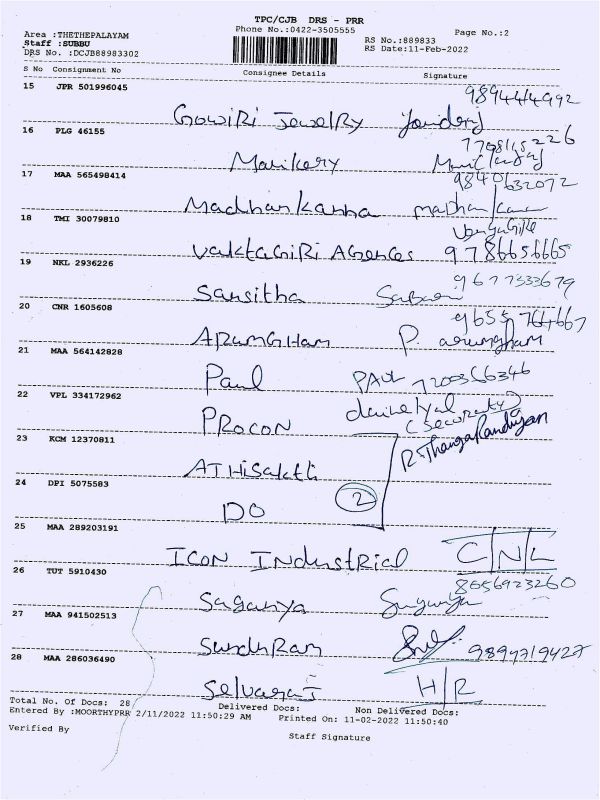 TPC/CJB DRS - PRR
Area :THETHEPALAYAM Phone No.:0422-3505555 Page No.:2
Staff :SUBBU RS No.:889833
DRS No. :DCJB88983302 RS Date:11-Feb-2022
S No Consignment No Consignee Details Signature
15 JPR 501996045 9894444992
Gowiri Jewelry
16 PLG 46155 7708115226
Manikery
17 MAA 565498414 9840632072
Madhankanna madhankanna
18 TMI 30079810
Vaktagiri Agences 9786656665
19 NKL 2936226 9677333679
Sansitha
20 CNR 1605608 9655764667
Arumgham P. arumgham
21 MAA 564142828
Paul Paul 7200366346
22 VPL 334172962
Procon (Security)
23 KCM 12370811 R. ThangaPandiyan
Athisakthi
24 DPI 5075583 2
DO
25 MAA 289203191
Icon Industrial C/N/L
26 TUT 5910430 8056923260
Saganya Suganya
27 MAA 941502513
SundhRam 9894719427
28 MAA 286036490
Selvaraj H/R
Total No. Of Docs: 28 Delivered Docs: Non Delivered Docs:
Entered By :MOORTHYPRR 2/11/2022 11:50:29 AM Printed On: 11-02-2022 11:50:40
Verified By Staff Signature